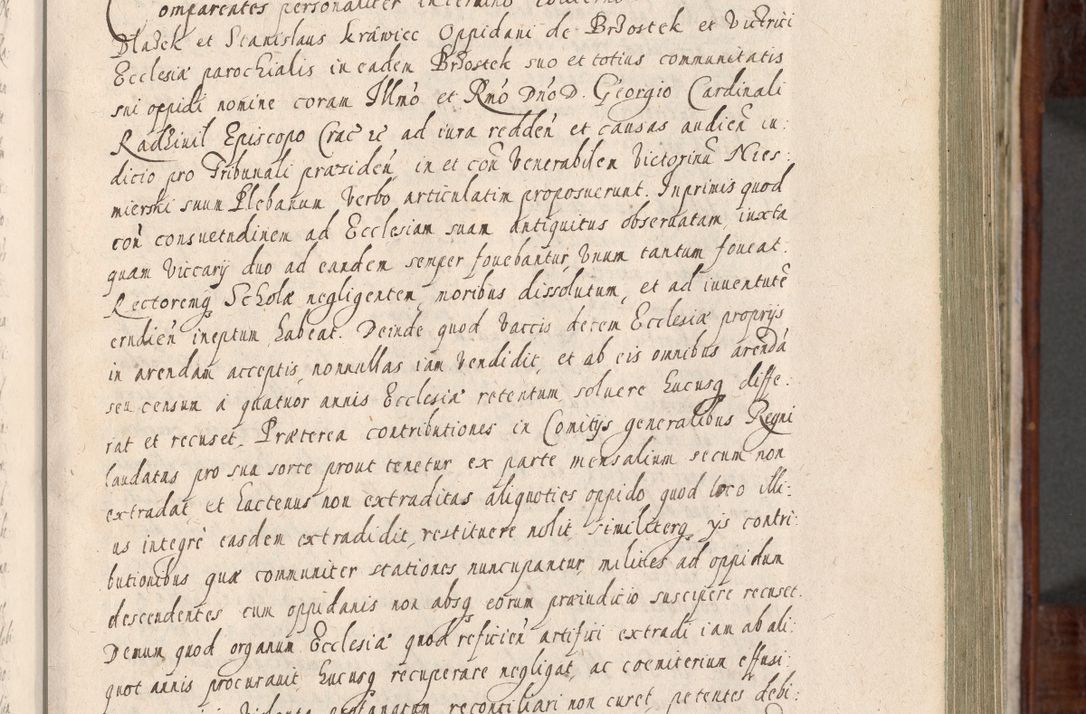 Comparentes personaliter in termino
Dlazek et Stanislaus krawiec Oppidani de Brzostek et Victrici
Ecclesiæ parochialis in eadem Brzostek suo et totius communitatis
sui oppidi nomine coram Illmo et Rmo Dno D. Georgio Cardinali
Radziuil Episcopo Crac etc ad iura redden et causas audien iu:
dicio pro Tribunali præsiden, in et con Venerabilem Victorinu Nies:
mierski suum Plebanum Verbo articulatim proposuerunt. Inprimis quod
con consuetudinem ad Ecclesiam suam antiquitus obseruatam, iuxta
quam Viccarij duo ad eandem semper fouebantur, Vnum tantum foueat.
Rectoremq Scholæ negligentem, moribus dissolutum, et ad iuuentute
erudien ineptum habeat. Deinde quod Vaccis decem Ecclesiæ proprijs
in arendam acceptis, nonnullas iam Vendidit, et ab eis omnibus arenda
seu censum a quatuor annis Ecclesiæ retentum, soluere hucusq diffe:
rat et recuset. Præterea contributiones in Comitijs generalibus Regni
laudatas pro sua sorte prout tenetur ex parte mensalium secum non
extradat, et hactenus non extraditas aliquoties oppido quod loco illi:
us integrè easdem extradidit, restituere nolit, similiterq ijs contri:
butionibus quæ communiter stationes nuncupantur, milites ad oppidum
descendentes cum oppidanis non absq eorum præiudicio suscipere recuset.
Demum quod organum Ecclesiæ quod reficien artifici extradi iam ab ali:
quot annis procurauit, hucusq recuperare negligat, ac coemiterium effusi:
reconciliari non curet, petentes debi: